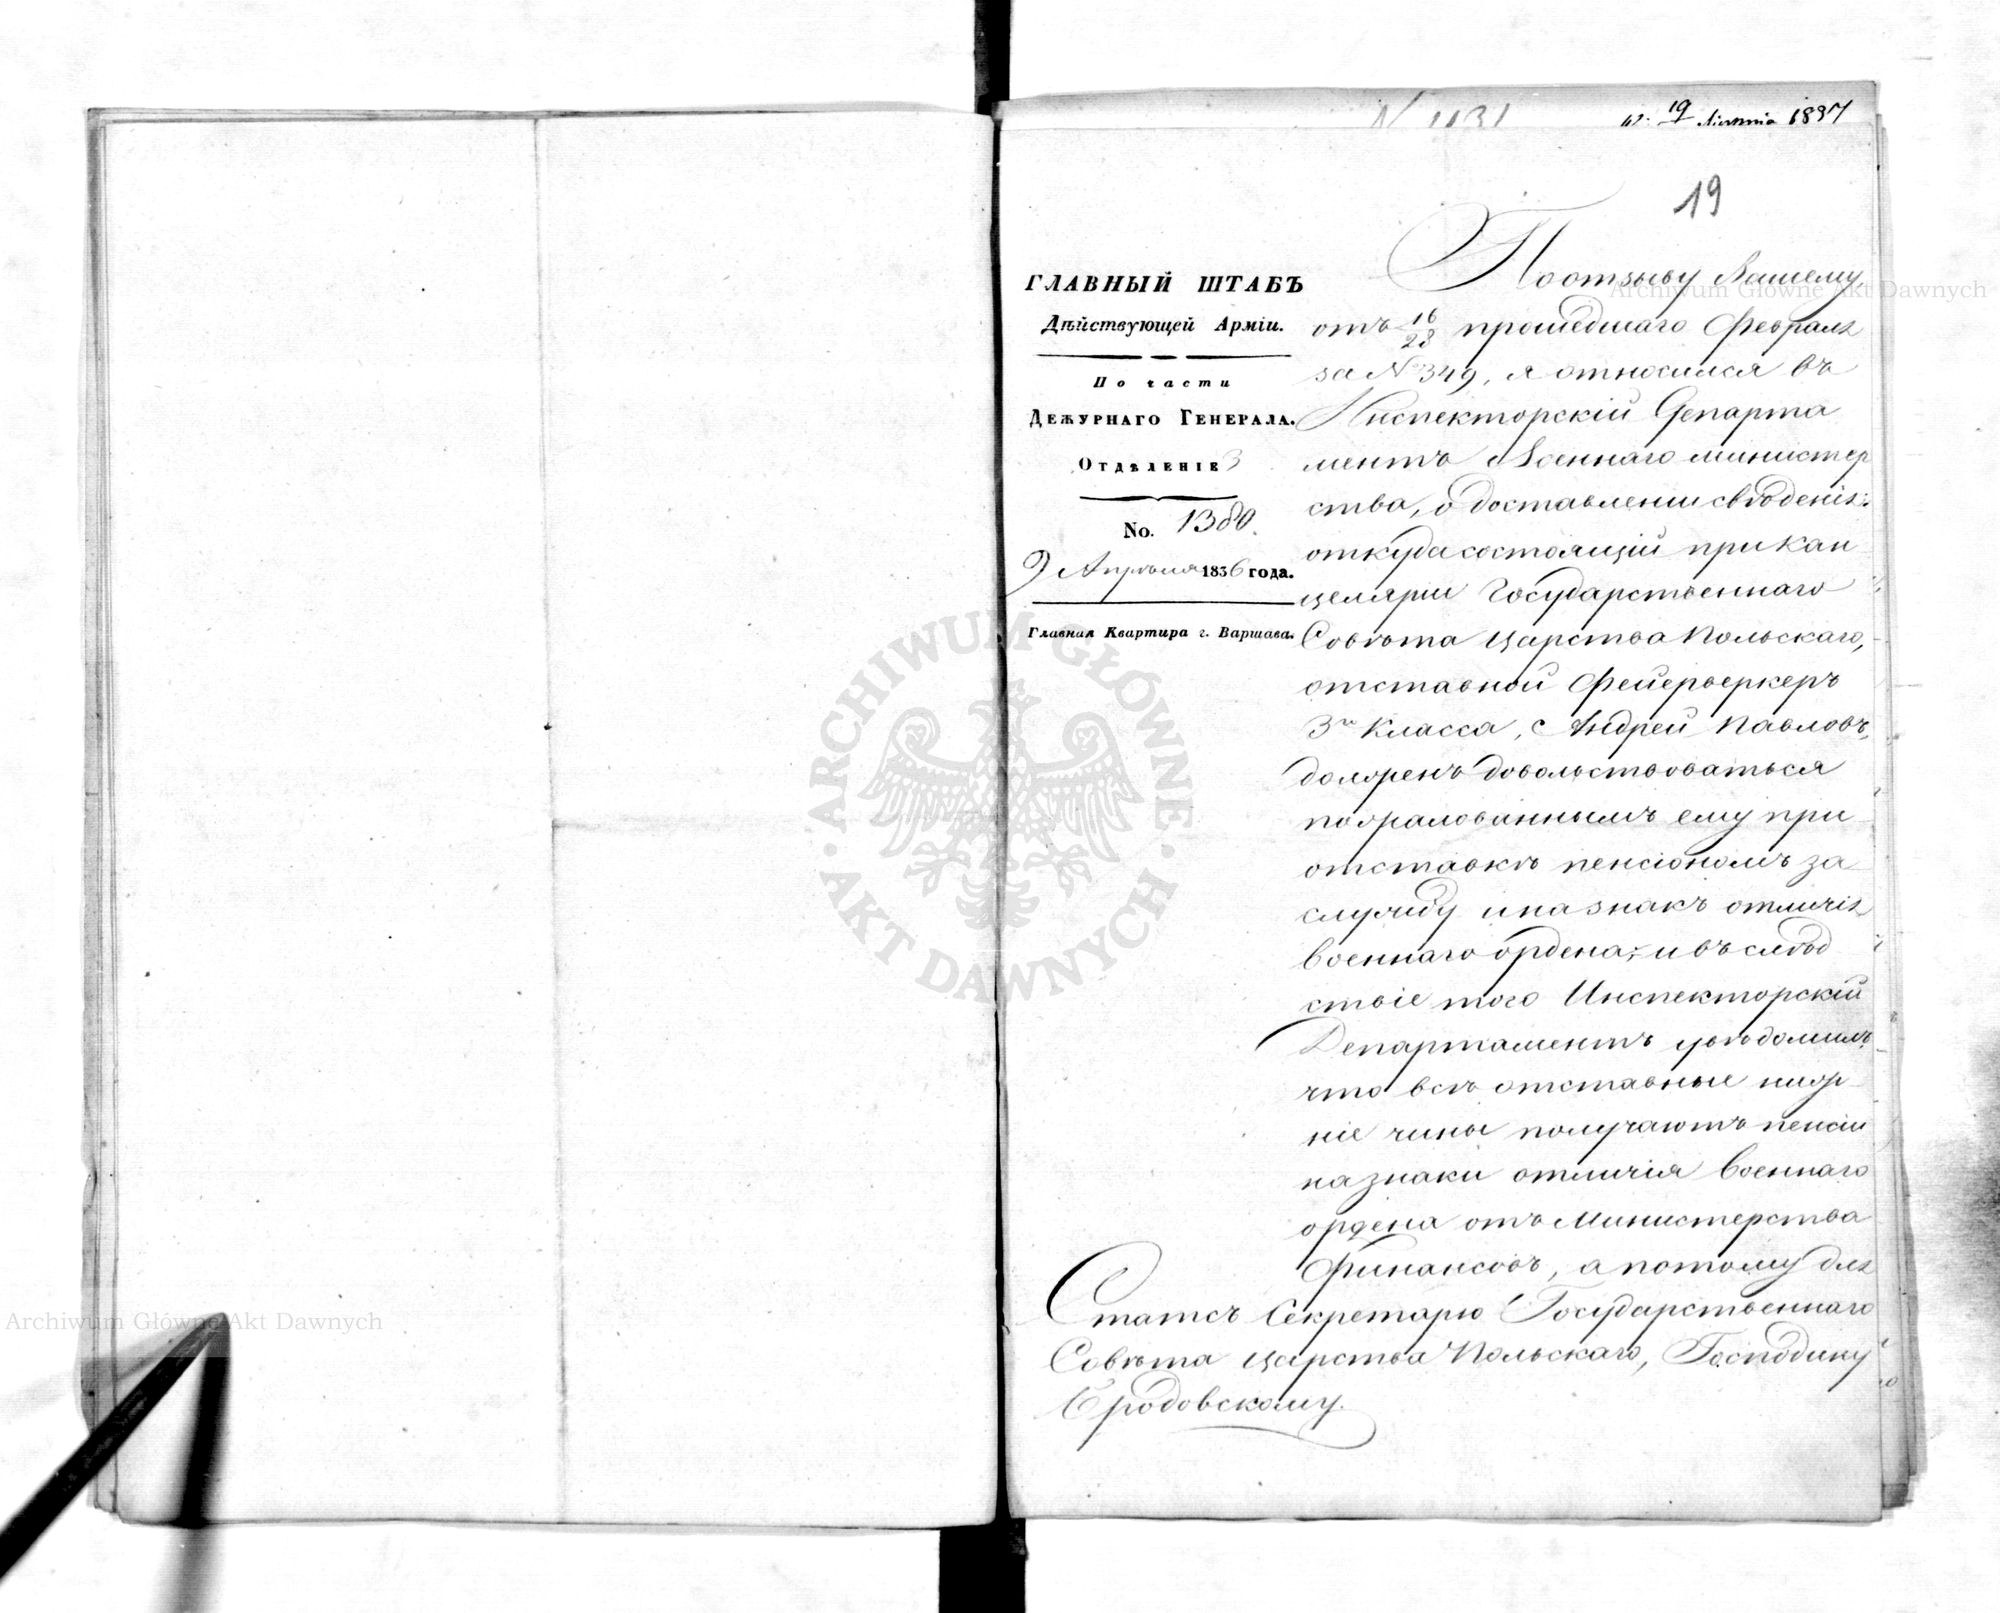 N 1131
19 Sierpnia 1837
19
ГЛАВНЫЙ ШТАБЪ
Дѣйствующей Арміи.
По части
ДЕЖУРНАГО ГЕНЕРАЛА.
ОТДѢЛЕНІЕ 3
No. 1380.
9 Апрѣля 1836 года.
Главная Квартира г. Варшава.
По отзыву Вашему
отъ 16/28 прошедшаго Февраля
за № 349, я относился въ
Инспекторскій Департа
ментъ Военнаго министер
ства, о доставленіи свѣденія:
откуда состоящій при кан
целяріи Государственнаго
Совѣта Царства Польскаго,
отставной Фейерверкеръ
3го Класса, Андрей Павловъ,
долженъ довольствоваться
пожалованнымъ ему при
отставкѣ пенсіономъ за
службу и на знакъ отличія
военнаго ордена; и въ слѣд
ствіе того Инспекторскій
Департаментъ увѣдомилъ,
что всѣ отставные ниж
ніе чины получаютъ пенсіи
на знаки отличія военнаго
ордена отъ Министерства
Финансовъ, а потому для
Статсъ Секретарю Государственнаго
Совѣта Царства Польскаго, Господину
Бродовскому.
Archiwum Główne Akt Dawnych
Archiwum Główne Akt Dawnych
ARCHIWUM GŁÓWNE
AKT DAWNYCH